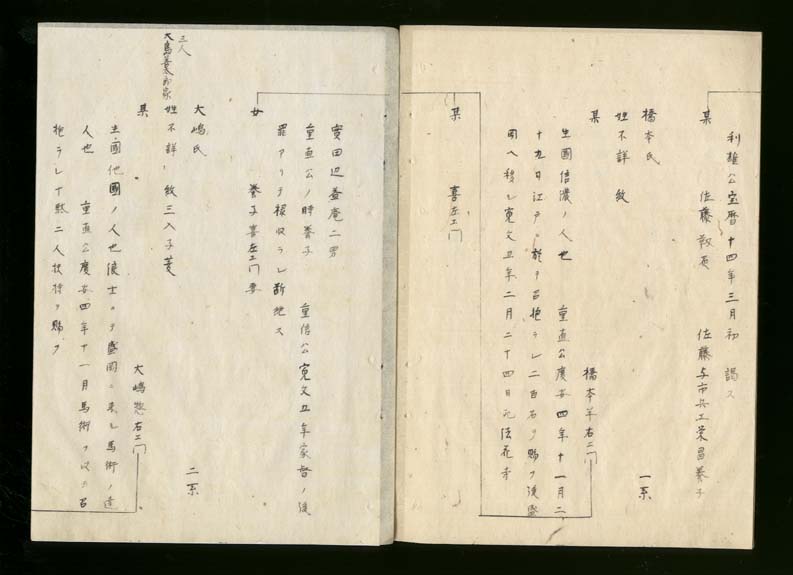 利雄公宝暦十四年三月初謁ス
某 佐藤 佐藤与市兵エ栄昌養子
橋本氏 一系
姓不詳 紋
某 橋本半右エ門
生國信濃ノ人也 重直公慶安四年十一月二
十九日江戸ニ於テ召抱ラレ二百石ヲ賜フ後盛
岡ヘ移ル寛文五年二月二十四日死法花寺
某 喜左エ門
實田辺益庵二男
重直公ノ時養子 重信公寛文五年家督ノ後
罪アリテ禄収ラレ断絶ス
女 養子喜左エ門妻
大嶋氏 二系
三人
大島善太郎家
姓不詳 紋三入子菱
某 大嶋惣右エ門
生國他國ノ人也浪士ニテ盛岡ニ来ル馬術ノ達
人也 重直公慶安四年十一月馬術ヲ以テ召
抱ラレ十駄二人扶持ヲ賜フ